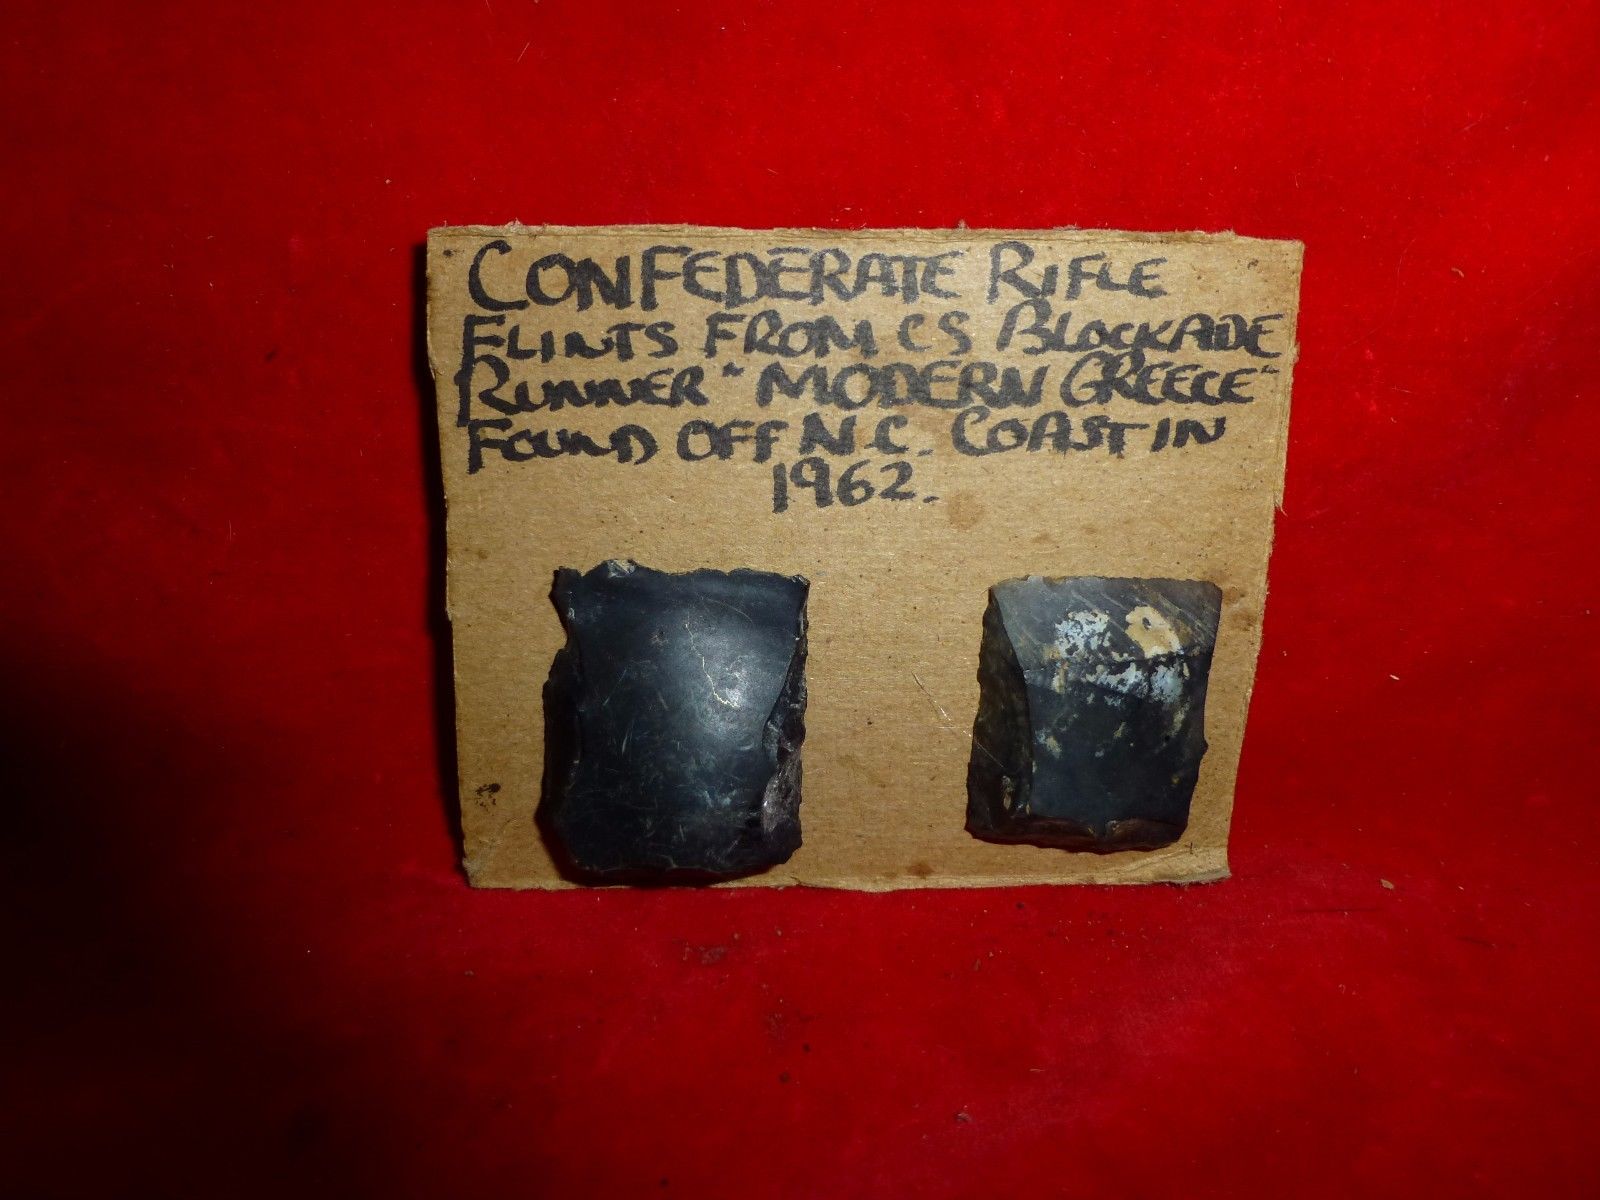 CONFEDERATE RIFLE
FLINTS FROM CS BLOCKADE
RUNNER "MODERN GREECE"
FOUND OFF N.C. COAST IN
1962.